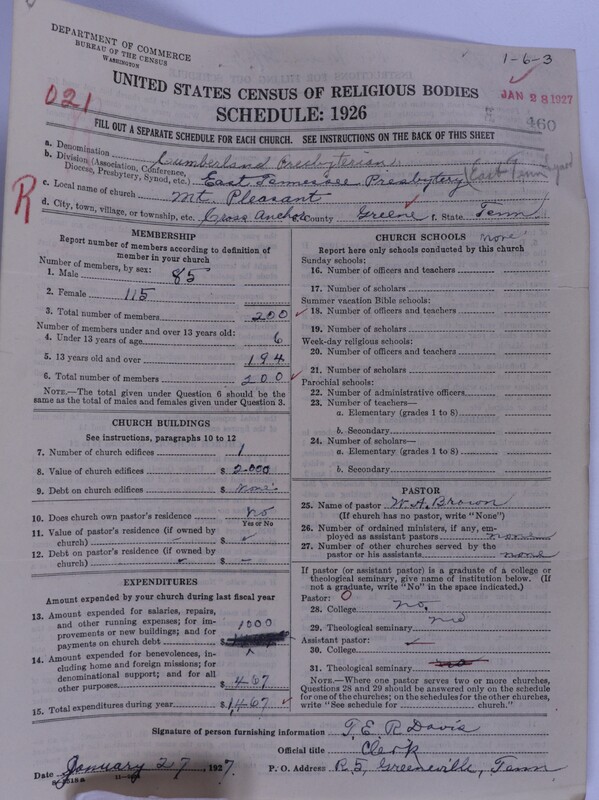 DEPARTMENT OF COMMERCE
BUREAU OF THE CENSUS
WASHINGTON
1-6-3
UNITED STATES CENSUS OF RELIGIOUS BODIES
JAN 28 1927
SCHEDULE: 1926
021
460
FILL OUT A SEPARATE SCHEDULE FOR EACH CHURCH. SEE INSTRUCTIONS ON THE BACK OF THIS SHEET
a. Denomination Cumberland Presbyterian
b. Division (Association, Conference, Diocese, Presbytery, Synod, etc.) East Tennessee Presbytery (East Tenn Synod
c. Local name of church Mt. Pleasant
R
d. City, town, village, or township, etc. Cross Anchor County Greene f. State Tenn
MEMBERSHIP
Report number of members according to definition of
member in your church
Number of members, by sex:
1. Male 85
2. Female 115
3. Total number of members 200
Number of members under and over 13 years old:
4. Under 13 years of age 6
5. 13 years old and over 194
6. Total number of members 200
NOTE.—The total given under Question 6 should be
same as the total of males and females given under Question 3.
CHURCH BUILDINGS
See instructions, paragraphs 10 to 12
7. Number of church edifices 1
8. Value of church edifices $ 2000
9. Debt on church edifices $ none
10. Does church own pastor's residence no
Yes or No
11. Value of pastor's residence (if owned by
church) $
12. Debt on pastor's residence (if owned by
church) $ —
EXPENDITURES
Amount expended by your church during last fiscal year
13. Amount expended for salaries, repairs,
and other running expenses; for im-
provements or new buildings; and for
payments on church debt $ 1000
14. Amount expended for benevolences, in-
cluding home and foreign missions; for
denominational support; and for all
other purposes $ 467
15. Total expenditures during year $ 1,467
CHURCH SCHOOLS none
Report here only schools conducted by this church
Sunday schools:
16. Number of officers and teachers
17. Number of scholars
Summer vacation Bible schools:
18. Number of officers and teachers
19. Number of scholars
Week-day religious schools:
20. Number of officers and teachers
21. Number of scholars
Parochial schools:
22. Number of administrative officers
23. Number of teachers—
a. Elementary (grades 1 to 8)
b. Secondary
24. Number of scholars—
a. Elementary (grades 1 to 8)
b. Secondary
PASTOR
25. Name of pastor W. A. Brown
(If church has no pastor, write "None")
26. Number of ordained ministers, if any, em-
ployed as assistant pastors none
27. Number of other churches served by the
pastor or his assistants none
If pastor (or assistant pastor) is a graduate of a college or
theological seminary, give name of institution below. (If
not a graduate, write "No" in the space indicated.)
Pastor: O
28. College no.
29. Theological seminary no
Assistant pastor:
30. College
31. Theological seminary no
NOTE.—Where one pastor serves two or more churches,
Questions 28 and 29 should be answered only on the schedule
for one of the churches; on the schedules for the other churches,
write "See schedule for church."
Signature of person furnishing information T. E. R. Davis
Official title Clerk
Date January 27, 1927. P. O. Address R. 5, Greeneville, Tenn